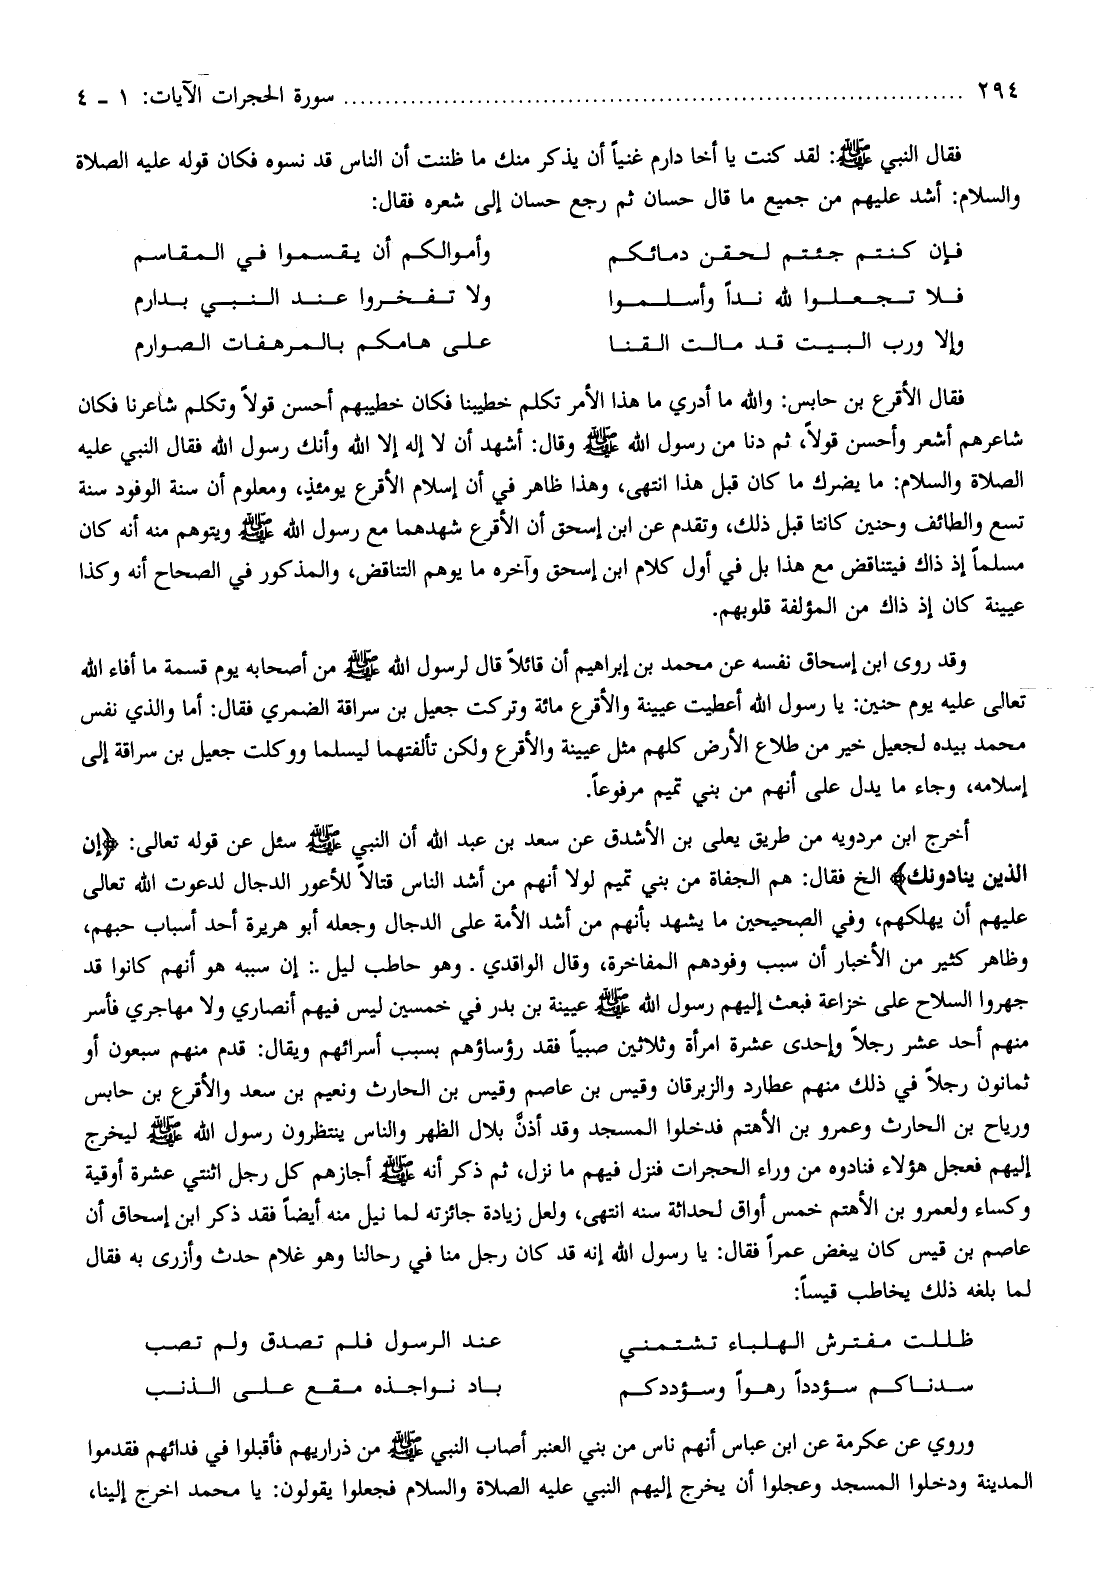 ٢٩٤ ........ سورة الحجرات الآيات: ١ - ٤
فقال النبي ﷺ: لقد كنت يا أخا دارم غنياً أن يذكر منك ما ظننت أن الناس قد نسوه فكان قوله عليه الصلاة
والسلام: أشد عليهم من جميع ما قال حسان ثم رجع حسان إلى شعره فقال:
فإن كنتم جئتم لحقن دمائكم وأموالكم أن يقسموا في المقاسم
فلا تجعلوا لله نداً وأسلموا ولا تفخروا عند النبي بدارم
وإلا ورب البيت قد مالت القنا على هامكم بالمرهفات الصوارم
فقال الأقرع بن حابس: والله ما أدري ما هذا الأمر تكلم خطيبنا فكان خطيبهم أحسن قولاً وتكلم شاعرنا فكان
شاعرهم أشعر وأحسن قولاً، ثم دنا من رسول الله ﷺ وقال: أشهد أن لا إله إلا الله وأنك رسول الله فقال النبي عليه
الصلاة والسلام: ما يضرك ما كان قبل هذا انتهى، وهذا ظاهر في أن إسلام الأقرع يومئذٍ، ومعلوم أن سنة الوفود سنة
تسع والطائف وحنين كانتا قبل ذلك، وتقدم عن ابن إسحق أن الأقرع شهدهما مع رسول الله ﷺ ويتوهم منه أنه كان
مسلماً إذ ذاك فيتناقض مع هذا بل في أول كلام ابن إسحق وآخره ما يوهم التناقض، والمذكور في الصحاح أنه وكذا
عيينة كان إذ ذاك من المؤلفة قلوبهم.
وقد روى ابن إسحاق نفسه عن محمد بن إبراهيم أن قائلاً قال لرسول الله ﷺ من أصحابه يوم قسمة ما أفاء الله
تعالى عليه يوم حنين: يا رسول الله أعطيت عيينة والأقرع مائة وتركت جعيل بن سراقة الضمري فقال: أما والذي نفس
محمد بيده لجعيل خير من طلاع الأرض كلهم مثل عيينة والأقرع ولكن تألفتهما ليسلما ووكلت جعيل بن سراقة إلى
إسلامه، وجاء ما يدل على أنهم من بني تميم مرفوعاً.
أخرج ابن مردويه من طريق يعلى بن الأشدق عن سعد بن عبد الله أن النبي ﷺ سئل عن قوله تعالى: ﴿إن
الذين ينادونك﴾ الخ فقال: هم الجفاة من بني تميم لولا أنهم من أشد الناس قتالاً للأعور الدجال لدعوت الله تعالى
عليهم أن يهلكهم، وفي الصحيحين ما يشهد بأنهم من أشد الأمة على الدجال وجعله أبو هريرة أحد أسباب حبهم،
وظاهر كثير من الأخبار أن سبب وفودهم المفاخرة، وقال الواقدي . وهو حاطب ليل .: إن سببه هو أنهم كانوا قد
جهروا السلاح على خزاعة فبعث إليهم رسول الله ﷺ عيينة بن بدر في خمسين ليس فيهم أنصاري ولا مهاجري فأسر
منهم أحد عشر رجلاً وإحدى عشرة امرأة وثلاثين صبياً فقد رؤساؤهم بسبب أسرائهم ويقال: قدم منهم سبعون أو
ثمانون رجلاً في ذلك منهم عطارد والزبرقان وقيس بن عاصم وقيس بن الحارث ونعيم بن سعد والأقرع بن حابس
ورياح بن الحارث وعمرو بن الأهتم فدخلوا المسجد وقد أذنَّ بلال الظهر والناس ينتظرون رسول الله ﷺ ليخرج
إليهم فعجل هؤلاء فنادوه من وراء الحجرات فنزل فيهم ما نزل، ثم ذكر أنه ﷺ أجازهم كل رجل اثنتي عشرة أوقية
وكساء ولعمرو بن الأهتم خمس أواق لحداثة سنه انتهى، ولعل زيادة جائزته لما نيل منه أيضاً فقد ذكر ابن إسحاق أن
عاصم بن قيس كان يبغض عمراً فقال: يا رسول الله إنه قد كان رجل منا في رحالنا وهو غلام حدث وأزرى به فقال
لما بلغه ذلك يخاطب قيساً:
ظللت مفترش الهلباء تشتمني عند الرسول فلم تصدق ولم تصب
سدناكم سؤدداً رهواً وسؤددكم باد نواجذه مقع على الذنب
وروي عن عكرمة عن ابن عباس أنهم ناس من بني العنبر أصاب النبي ﷺ من ذراريهم فأقبلوا في فدائهم فقدموا
المدينة ودخلوا المسجد وعجلوا أن يخرج إليهم النبي عليه الصلاة والسلام فجعلوا يقولون: يا محمد اخرج إلينا،